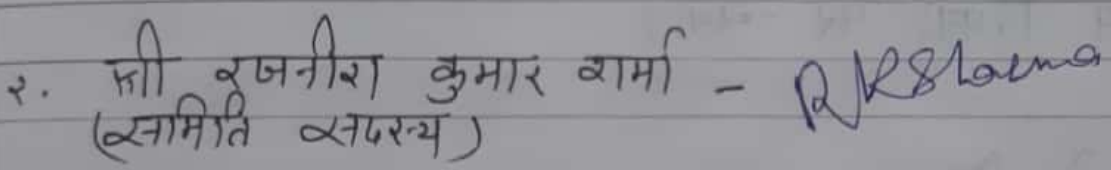 २. श्री रजनीश कुमार शर्मा - RKSharma
(समिति सदस्य)